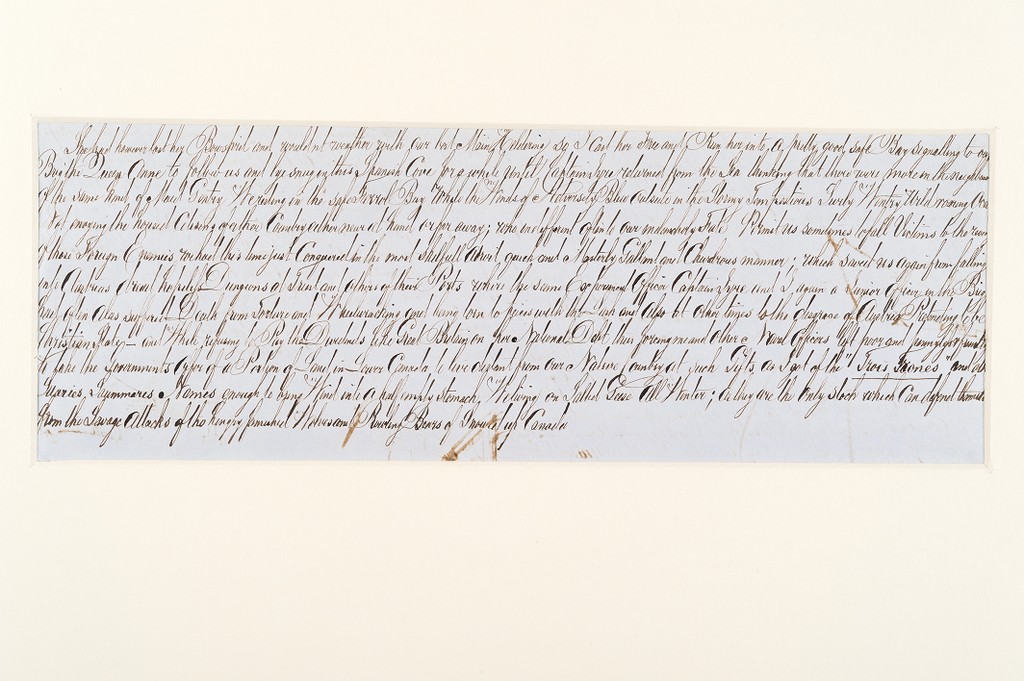 She had however lost her Bowsprit and wouldn't weather with our best Main so I Cast her Free and Run her into a pretty good safe Bay signalling to our
Brig the Queen Anne to follow us and lye snug in this Spanish Cove for a while until Captain returned from the Sea thinking that there were more in the neighbour
of the same kind of Gentry We in the safe Bay While the Winds of Adversity Blew outside in the Stormy Tempestuous Wintry Wild roaring
Not the in either Country either near at hand or far away; who indifferent often to our melancholy Fate Permit us sometimes to fall Victims to the
of those Foreign Enemies we had this time just Conquered in the most Skilfull quick and Masterly Gallant and Chivalrous manner; which saved us again from falling
into Austrias Dread hopeless Dungeons of and others of their Ports where the same Officer Captain and I again a Junior Officer in the Brig
often Alas suffered Death from Torture and and being torn to pieces with the Lash and also at other times to the disgrace of to be
Christian States and While refusing to Pay the Dividends like Great Britain on her National Debt thus forcing me and other Naval Officers left poor and
to take the Governments offer of a Portion of Land in Lower Canada to live distant from our Native Country at such Gifts as I got of the "Trois " and
Maries, Names enough to bring Wind into a half empty stomach, We living on Salted Geese All Winter; as they are the only stock which Can defend themselves
from the Savage Attacks of the hungry famished Wolves and Roaring Bears of Snowed up Canada